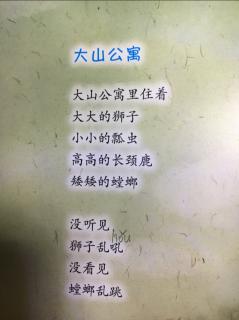 大山公寓
大山公寓里住着
大大的狮子
小小的瓢虫
高高的长颈鹿
矮矮的螳螂
没听见
狮子乱吼
没看见
螳螂乱跳